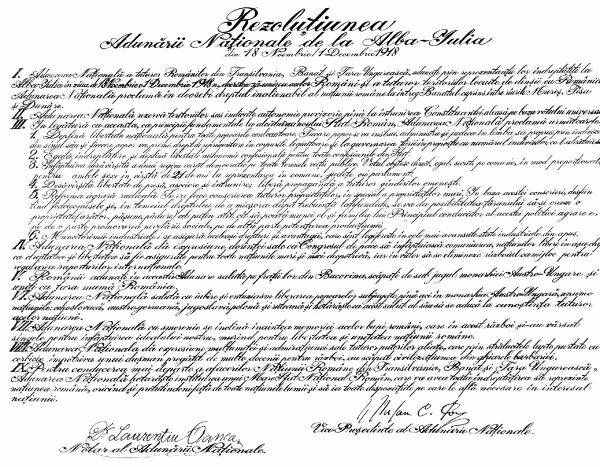 Rezoluțiunea
Adunării Naționale de la Alba-Iulia
din 18 Noembrie/1 Decembrie 1918
I. Adunarea Națională a tuturor Românilor din Transilvania, Banat și Țara Ungurească, adunați prin reprezentanții lor îndreptățiți la
Alba-Iulia în ziua de 18 Noembrie/1 Decembrie 1918, decretează unirea acelor Români și a tuturor teritoriilor locuite de dânșii cu România.
Adunarea Națională proclamă în deosebi dreptul inalienabil al națiunii române la întreg Banatul cuprins între râurile Mureș, Tisa
și Dunăre.
II. Adunarea Națională rezervă teritoriilor sus indicate autonomie provizorie până la întrunirea Constituantei aleasă pe baza votului universal.
III. În legătură cu aceasta, ca principii fundamentale la alcătuirea noului Stat Român, Adunarea Națională proclamă următoarele:
1. Deplină libertate națională pentru toate popoarele conlocuitoare. Fiecare popor se va instrui, administra și judeca în limba sa proprie prin indivizi
din sânul său și fiecare popor va primi drept de reprezentare în corpurile legiuitoare și la guvernarea țării în proporție cu numărul indivizilor ce-l alcătuiesc.
2. Egală îndreptățire și deplină libertate autonomă confesională pentru toate confesiunile din Stat.
3. Înfăptuirea desăvârșită a unui regim curat democratic pe toate terenele vieții publice. Votul obștesc, direct, egal, secret, pe comune, în mod proporțional,
pentru ambele sexe, în vârstă de 21 de ani la reprezentarea în comune, județe ori parlament.
4. Desăvârșită libertate de presă, asociere și întrunire; liberă propagandă a tuturor gândurilor omenești.
5. Reforma agrară radicală. Se va face conscrierea tuturor proprietăților, în special a proprietăților mari. În baza acestei conscrieri, desființând
fidei-comisele și în temeiul dreptului de a micșora după trebuință latifundiile, se va da posibilitatea țăranului să-și creeze o
proprietate (arător, pășune, pădure) cel puțin atât cât să poată munci el și familia lui. Principiul conducător al acestei politici agrare e
pe de o parte promovarea nivelării sociale, pe de altă parte potențarea producțiunii.
6. Muncitorimei industriale i se asigură aceleași drepturi și avantagii, care sunt legiferate în cele mai avansate state industriale din apus.
IV. Adunarea Națională dă expresiune dorinței sale ca Congresul de pace să înfăptuiască comuniunea națiunilor libere în așa chip,
ca dreptatea și libertatea să fie asigurate pentru toate națiunile mari și mici deopotrivă, iar în viitor să se elimineze războiul ca mijloc pentru
regularea raporturilor internaționale.
V. Românii adunați în această Adunare salută pe frații lor din Bucovina, scăpați de sub jugul monarhiei Austro-Ungare și
uniți cu țara mamă România.
VI. Adunarea Națională salută cu iubire și entuziasm liberarea popoarelor subjugate până aci în monarhia Austro-Ungară, anume
națiunile: cehoslovacă, austro-germană, jugoslavă, polonă și ruteană și hotărăște ca acest salut al său să se aducă la cunoștința tuturor
acelor națiuni.
VII. Adunarea Națională cu smerenie se închină înaintea memoriei acelor bravi români, care în acest război și-au vărsat
sângele pentru înfăptuirea idealului nostru, murind pentru libertatea și unitatea națiunii române.
VIII. Adunarea Națională dă expresiune mulțumitei și admirațiunei sale tuturor puterilor aliate, care prin strălucitele lupte purtate cu
cerbicie împotriva unui dușman pregătit de multe decenii pentru război, au scăpat civilizațiunea din ghiarele barbariei.
IX. Pentru conducerea mai departe a afacerilor Națiunii Române din Transilvania, Banat și Țara Ungurească,
Adunarea Națională hotărăște instituirea unui Mare Sfat Național Român, care va avea toată îndreptățirea să reprezinte
națiunea română oricând și pretutindeni față de toate națiunile lumii și să ia toate dispozițiile pe care le află necesare în interesul
națiunii.
Dr Laurențiu Oanea
Notar al Adunării Naționale.
Ștefan C. Pop
Vice-Președinte al Adunării Naționale.